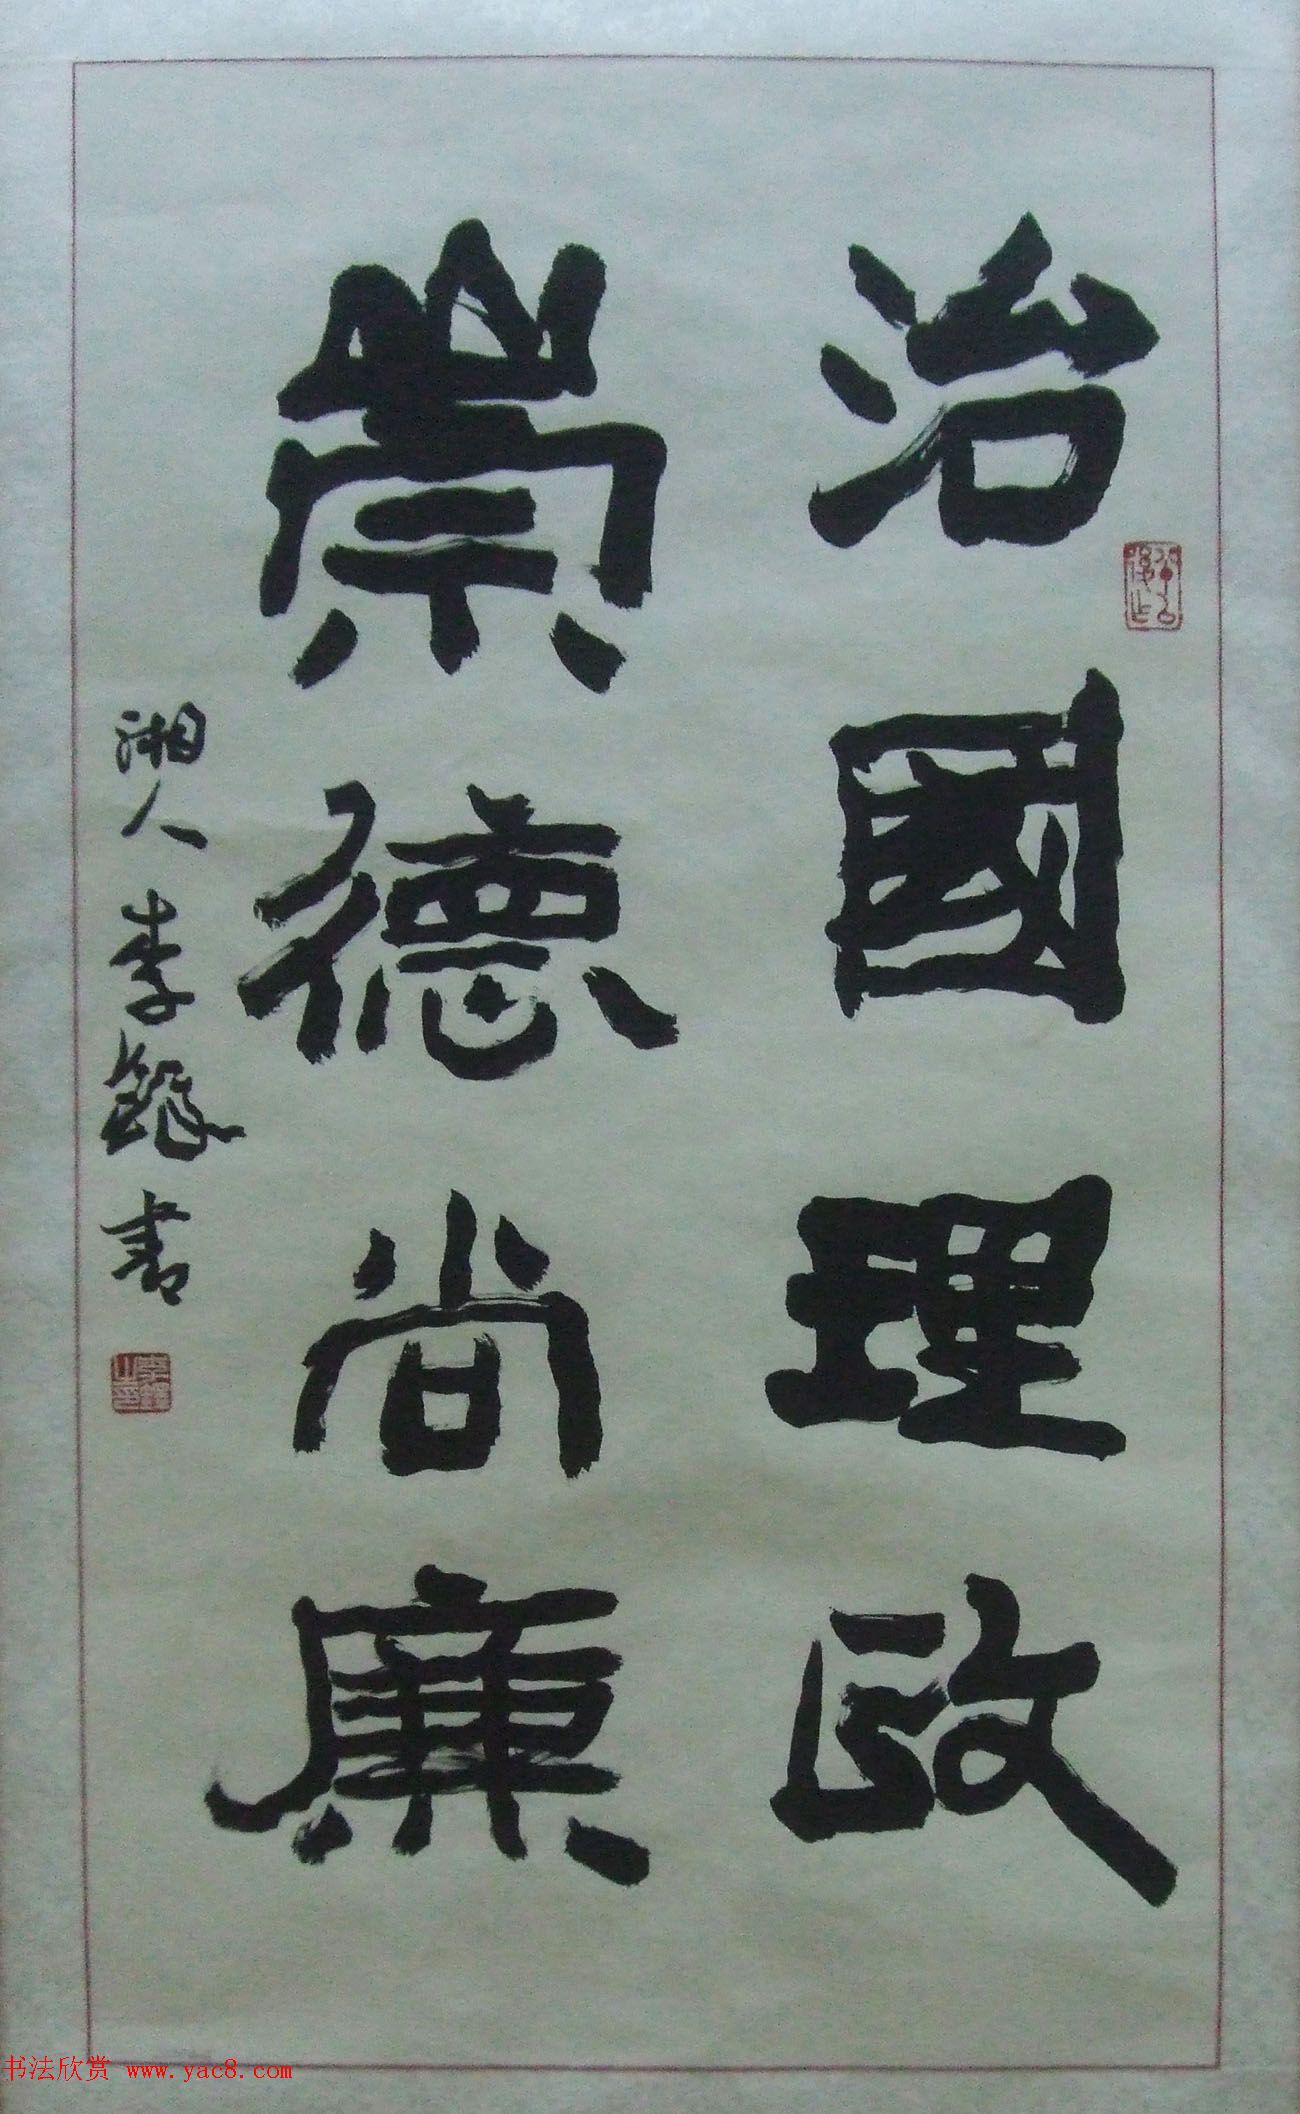 治國理政
崇德尚廉
湘人李鐸書
书法欣赏 www.yac8.com